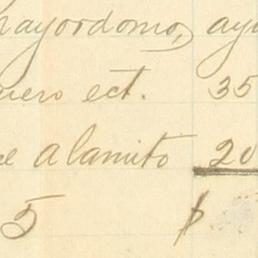 mayordomo, ayu
uero ect. 35
e Alamito 20
5 $